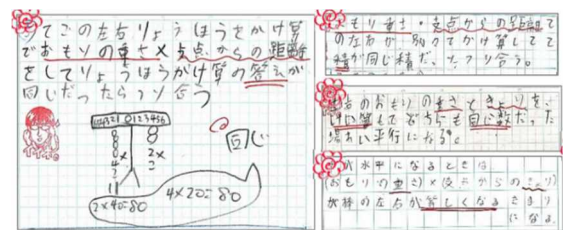 てこの左右りょうほうをかけ算
でおもりの重さ×支点からの距離
をしてりょうほうかけ算の答えが
同じだったらつり合う
654321 0123456
同じ
4×20=80
2×40=80
おもり重さ・支点からの距離で
の左右が、別々でかけ算して
積が同じ積だとつり合う。
左右のおもりの重さときょりを
かけ算してどちらも同じ数だった
場合い平行になる。
水平になるときは
(おもりの重さ)×(支点からのきょり)
が棒の左右が等しくなるときり
になる